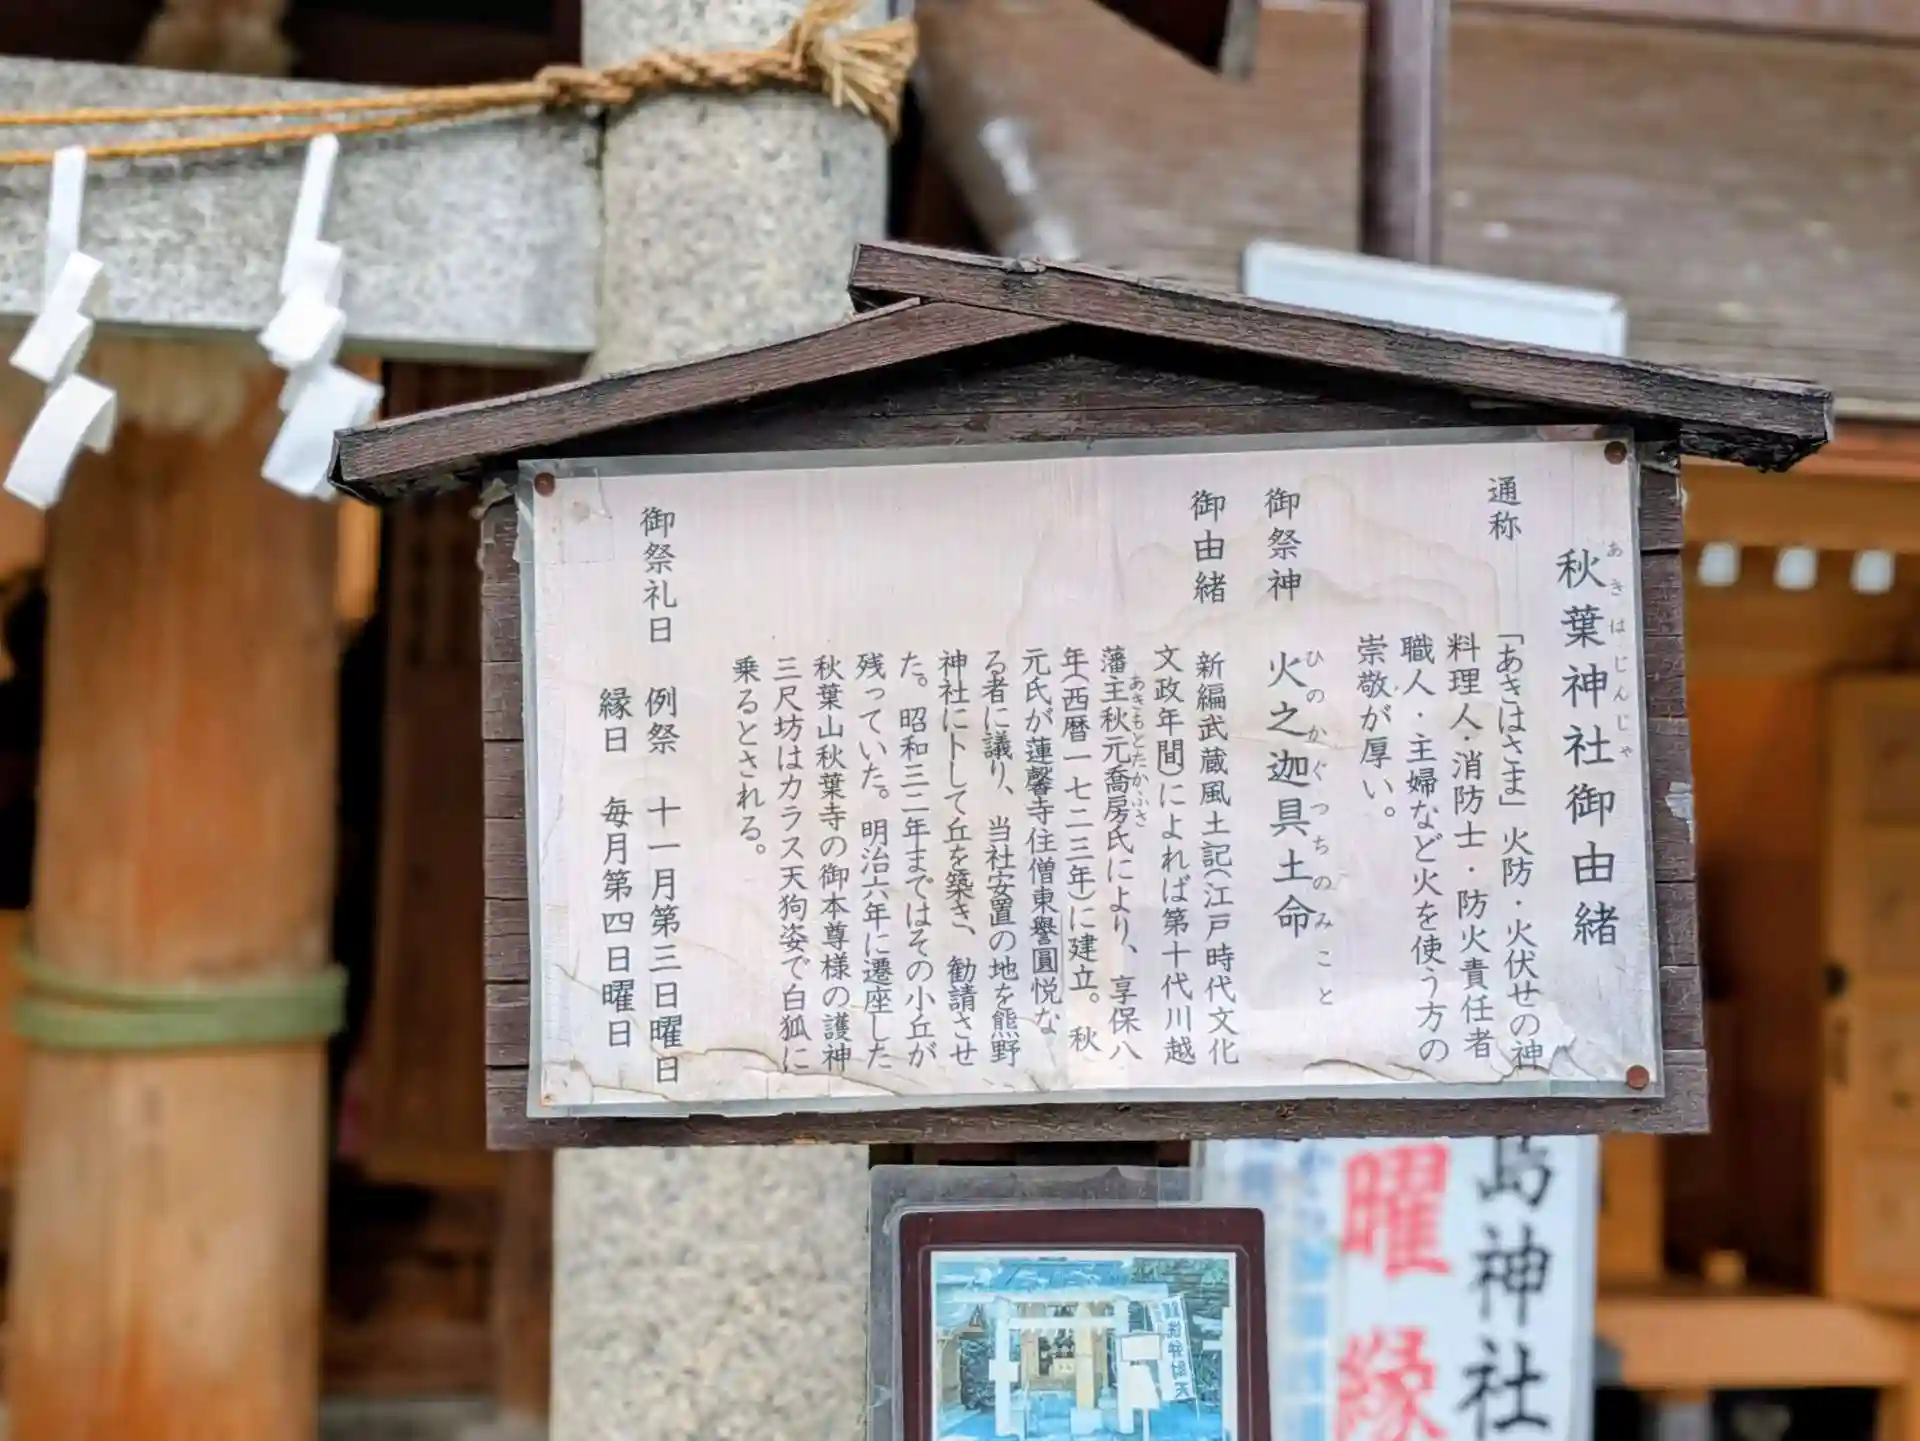 秋葉神社御由緒
あきはじんじゃ
通称
「あきはさま」火防・火伏せの神
料理人・消防士・防火責任者
職人・主婦など火を使う方の
崇敬が厚い。
御祭神 火之迦具土命
ひのかぐつちのみこと
御由緒
新編武蔵風土記(江戸時代文化
文政年間)によれば第十代川越
藩主秋元喬房氏により、享保八
あきもとたかふさ
年(西暦一七二三年)に建立。秋
元氏が蓮馨寺住僧東譽圓悦な
る者に議り、当社安置の地を熊野
神社に卜して丘を築き、勧請させ
た。昭和三二年まではその小丘が
残っていた。明治六年に遷座した
秋葉山秋葉寺の御本尊様の護神
三尺坊はカラス天狗姿で白狐に
乗るとされる。
御祭礼日 例祭 十一月第三日曜日
縁日 毎月第四日曜日
島神社
曜 縁